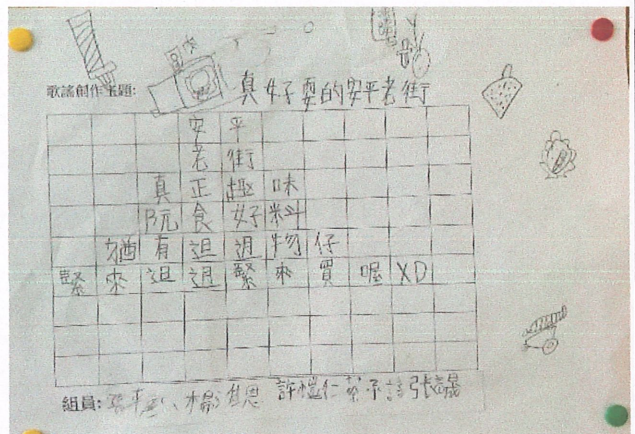 歌謠創作主題: 真好耍的安平老街
安平
老街
真正趣味
阮食好料
猶有𨑨迌物仔
緊來𨑨迌緊來買喔XD
組員: 許愷仁